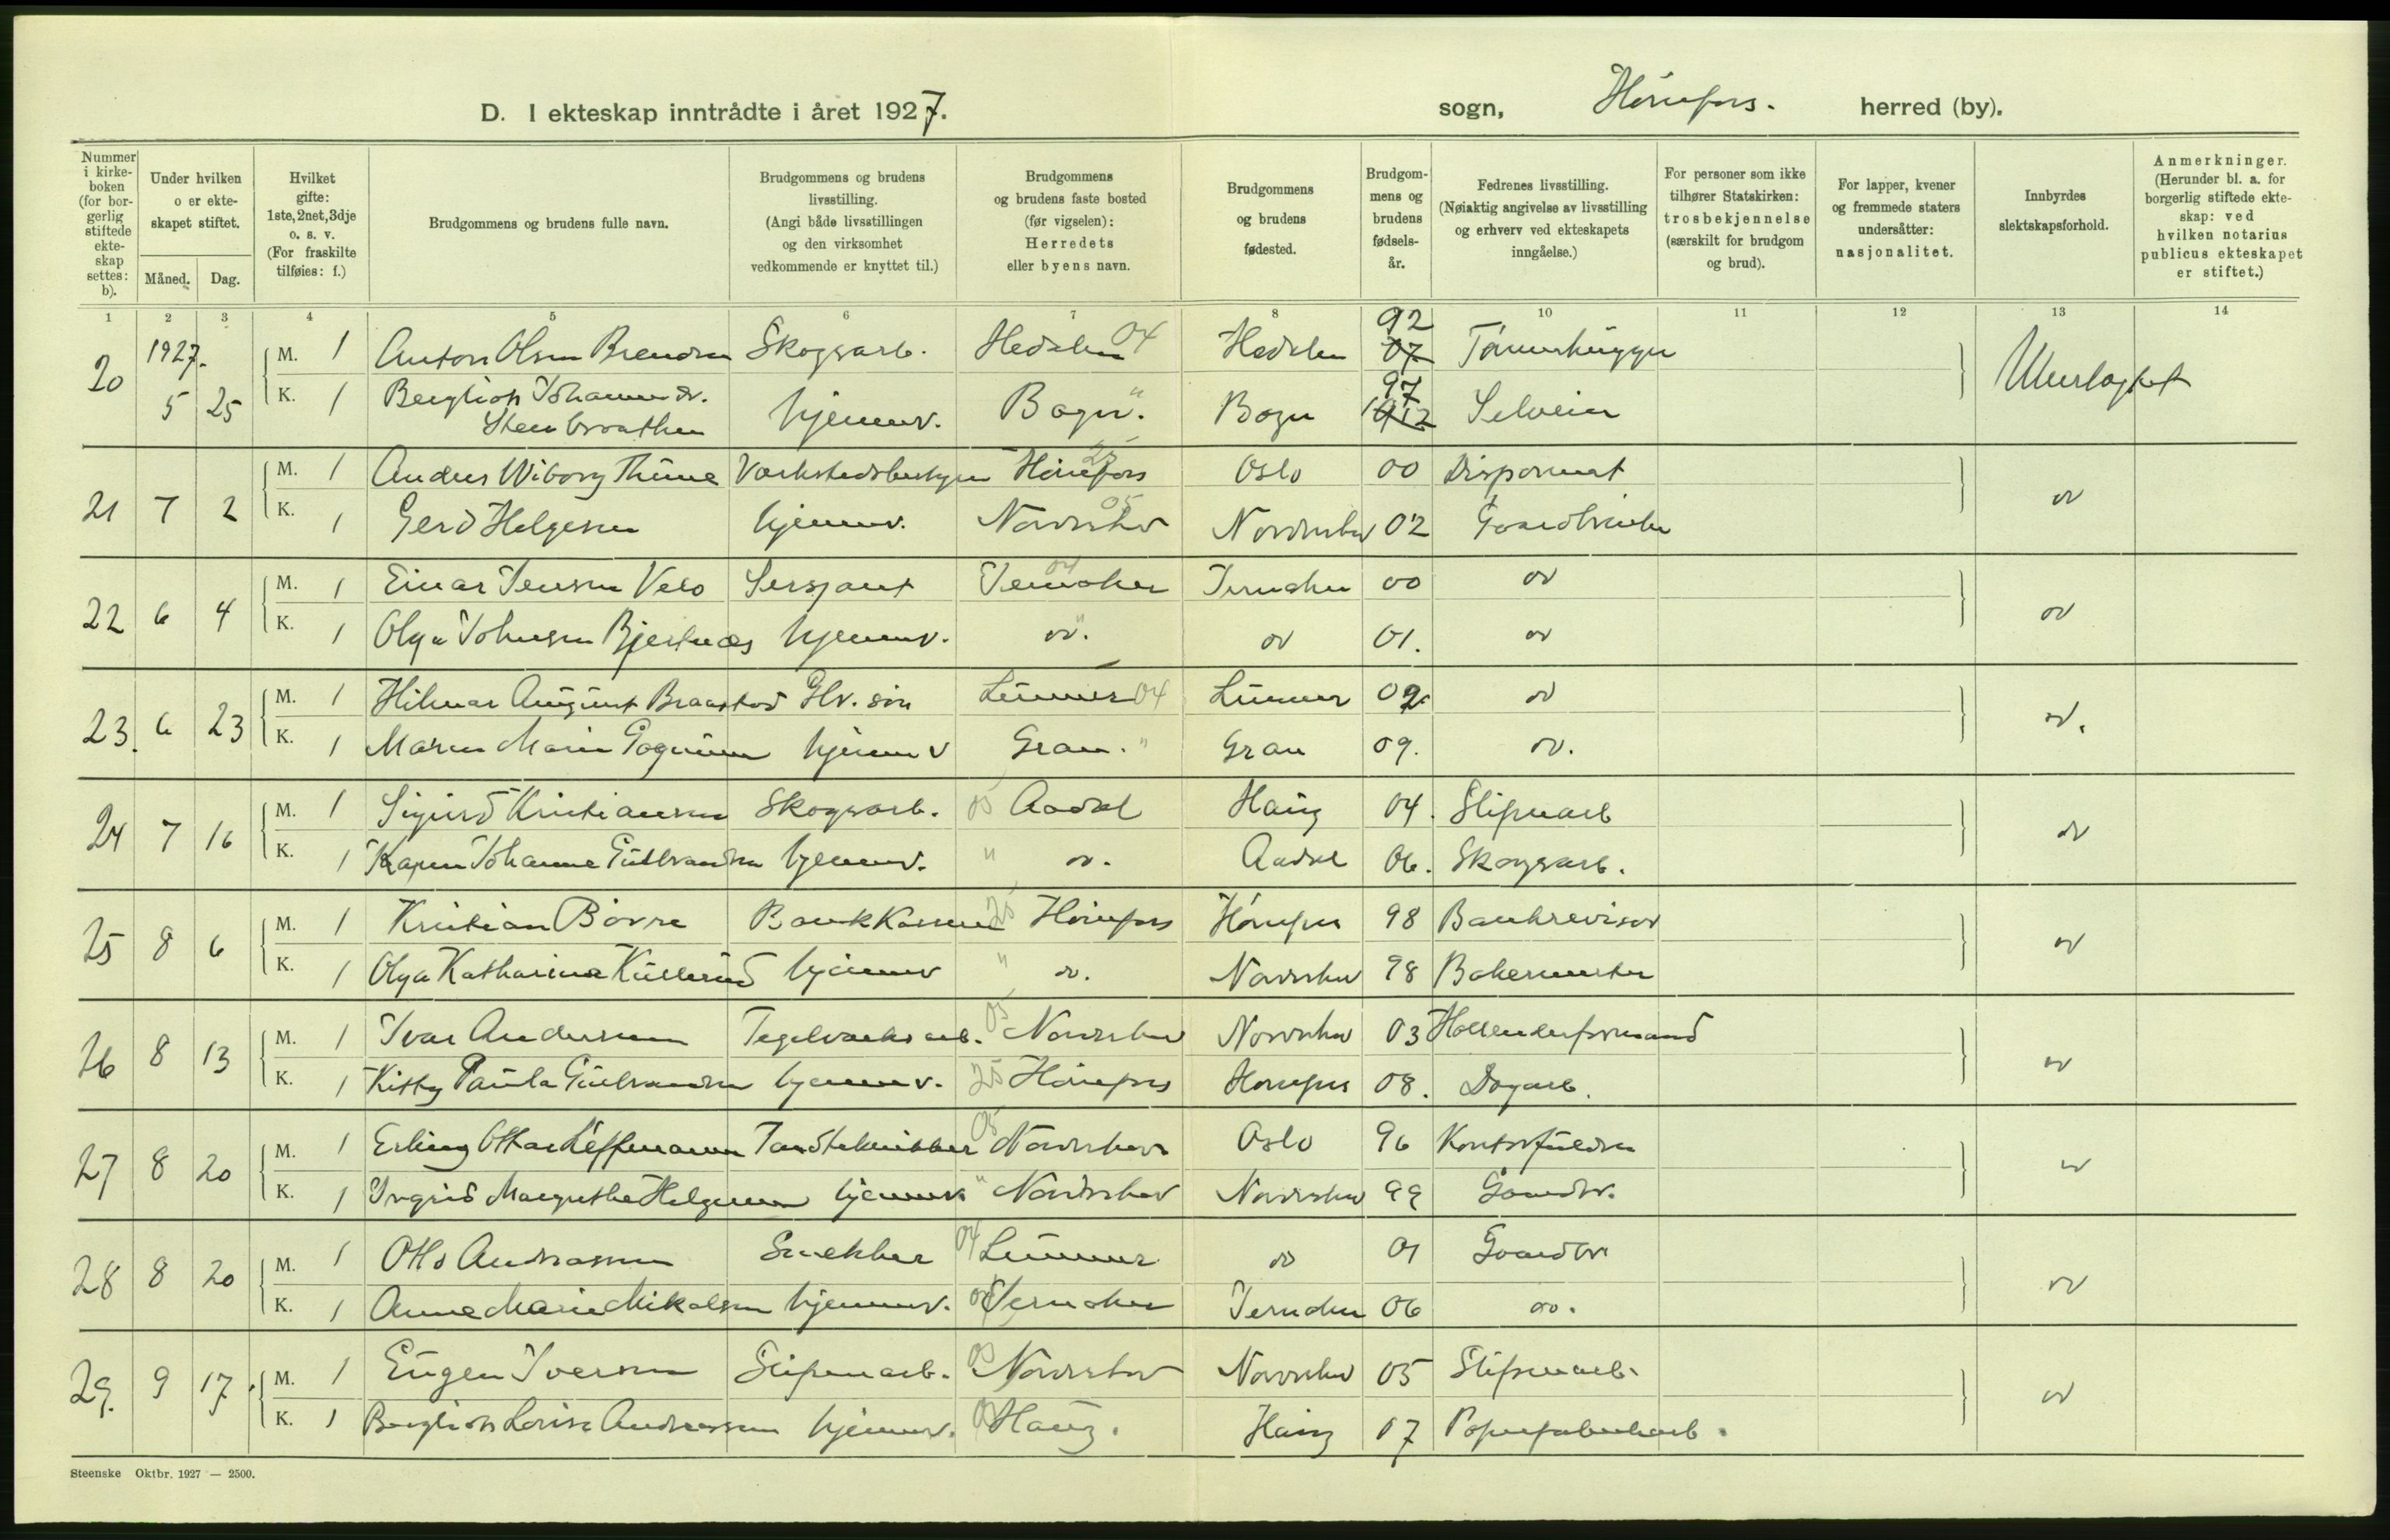 D. I ekteskap inntrådte i året 1927.
sogn, Hönefors. herred (by).
Nummer i kirkeboken (for borgerlig stiftede ekteskap settes: b).
Under hvilken o er ekteskapet stiftet.
Måned. Dag.
Hvilket gifte: 1ste, 2net, 3dje o. s. v. (For fraskilte tilføies: f.)
Brudgommens og brudens fulle navn.
Brudgommens og brudens livsstilling. (Angi både livsstillingen og den virksomhet vedkommende er knyttet til.)
Brudgommens og brudens faste bosted (før vigselen): Herredets eller byens navn.
Brudgommens og brudens fødested.
Brudgommens og brudens fødselsår.
Fedrenes livsstilling. (Nøiaktig angivelse av livsstilling og erhverv ved ekteskapets inngåelse.)
For personer som ikke tilhører Statskirken: trosbekjennelse (særskilt for brudgom og brud).
For lapper, kvener og fremmede staters undersåtter: nasjonalitet.
Innbyrdes slektskapsforhold.
Anmerkninger. (Herunder bl. a. for borgerlig stiftede ekteskap: ved hvilken notarius publicus ekteskapet er stiftet.)
1 2 3 4 5 6 7 8 9 10 11 12 13 14
20 1927. 5 25 M. 1 Anton Olsen Brendsen Skogsarb. Hedalen 04 Hedalen 07 92 Tömmerhugger Ubeslægtet
K. 1 Bergliot Johannesdr. Stenbraathen hjemmev. Bagn. " Bagn 1912 97 Selveier
21 7 2 M. 1 Anders Wiborg Thune Værkstedsbestyrer Hönefors 25 Oslo 00 Disponent do
K. 1 Gerd Helgesen hjemmev. Norderhov 05 Norderhov 02 Gaardbruker
22 6 4 M. 1 Einar Jensen Velo Sersjant Jevnaker 04 Jevnaker 00 do do
K. 1 Olga Johnsen Bjertnæs hjemmev. do. " do 01. do
23. 6 23 M. 1 Hilmar August Braastad Glv. sön Lunner 04 Lunner 02 do do.
K. 1 Maren Marie Gagnum hjemmev Gran. " Gran 09. do.
24 7 16 M. 1 Sigurd Kristiansen Skogsarb. 05 Aadal Haug 04. Sliperiarb do
K. 1 Karen Johanne Gulbrandsen hjemmev. " do. Aadal 06. Skogsarb.
25 8 6 M. 1 Kristian Börre Bankkasserer 25 Hönefors Hönefors 98 Bankrevisor do
K. 1 Olga Katharina Kullerud hjemmev " do. Norderhov 98 Bakermester
26 8 13 M. 1 Ivar Andersen Tegelverksarb. 05 Norderhov Norderhov 03 Hollenderformand do
K. 1 Kitty Paula Gulbrandsen hjemmev. 25 Hönefors Hönefors 08. Dagarb.
27 8 20 M. 1 Erling Ottar Leffmann Tandtekniker 05 Norderhov Oslo 96 Kontorfuldm do
K. 1 Ingrid Margrethe Helgesen hjemmev. " Norderhov Norderhov 99 Gaardbr.
28 8 20 M. 1 Otto Andreassen Snekker 04 Lunner do 01 Gaardbr do
K. 1 Anne Marie Mikalsen hjemmev. 04 Jevnaker Jevnaker 06 do.
29. 9 17. M. 1 Eugen Iversen Sliperiarb. 05 Norderhov Norderhov 05 Sliperiarb. do
K. 1 Bergliot Lovise Andreassen hjemmev. 05 Haug. Haug 07 Papirfabrikarb.
Steenske Oktbr. 1927 — 2500.